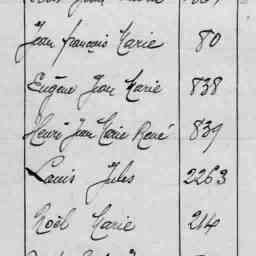 Jean François Marie 80
Eugène Jean Marie 838
Henri Jean Marie René 839
Louis Jules 2263
Noël Marie 214